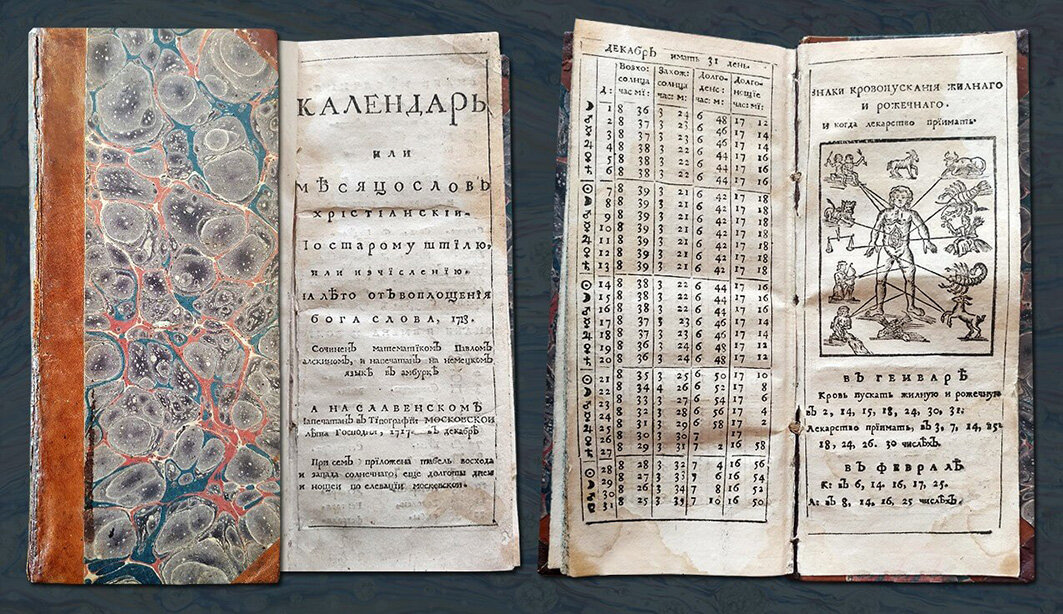 КАЛЕНДАРЬ
или
МѢСЯЦОСЛОВЪ
ХРІСТІАНСКІЙ.
По старому штілю,
или изчісленію.
НА ЛѢТО ОТЪ ВОПЛОЩЕНІЯ
БОГА СЛОВА, 1718.
Сочиненъ математікомъ Павломъ
алскиномъ, и напечатанъ на немецкомъ
языкѣ въ амбуркѣ
А НА СЛАВЕНСКОМЪ
напечатанъ въ Тіпографіи МОСКОВСКОЙ
лѣта Господня, 1717. въ декабрѣ
При семъ пріложена табель восхода
и запада солнечнаго; еще долготы дней
и нощей по елевации московской.
ДЕКАБРЬ имать 31 день.
Восхо: Захож: Долго- Долго-
солнца солнца денс: нощіе
д: час: мі: час: м: час: м: час: мі:
1 8 36 3 24 6 48 17 12
2 8 37 3 23 6 46 17 14
3 8 37 3 23 6 46 17 14
4 8 38 3 22 6 44 17 16
5 8 38 3 22 6 44 17 16
6 8 38 3 22 6 44 17 16
7 8 39 3 21 6 42 17 18
8 8 39 3 21 6 42 17 18
9 8 39 3 21 6 42 17 18
10 8 39 3 21 6 42 17 18
11 8 39 3 21 6 42 17 18
12 8 39 3 21 6 42 17 18
13 8 39 3 21 6 42 17 18
14 8 38 3 22 6 44 17 16
15 8 38 3 22 6 44 17 16
16 8 38 3 22 6 44 17 16
17 8 37 3 23 6 46 17 14
18 8 37 3 23 6 46 17 14
19 8 36 3 24 6 48 17 12
20 8 36 3 24 6 48 17 12
21 8 35 3 25 6 50 17 10
22 8 34 3 26 6 52 17 8
23 8 33 3 27 6 54 17 6
24 8 32 3 28 6 56 17 4
25 8 31 3 29 6 58 17 2
26 8 30 3 30 7 17
27 8 29 3 31 7 2 16 58
28 8 28 3 32 7 4 16 56
29 8 27 3 33 7 6 16 54
30 8 26 3 34 7 8 16 52
31 8 25 3 35 7 10 16 50
ЗНАКИ КРОВОПУСКАНІЯ ЖИЛНАГО
И РОЖЕЧНАГО.
и когда лекарство пріимать.
ВЪ ГЕНВАРѢ
Кровь пускать жилную и рожечную
въ 2, 14, 15, 18, 24, 30, 31:
Лекарство пріимать, въ 3, 7, 14, 25:
18, 24, 26. 30 числѣхъ.
ВЪ ФЕВРАЛѢ
К: въ 6, 14, 16, 17, 25.
Л: въ 8, 14, 16, 25 числѣхъ.